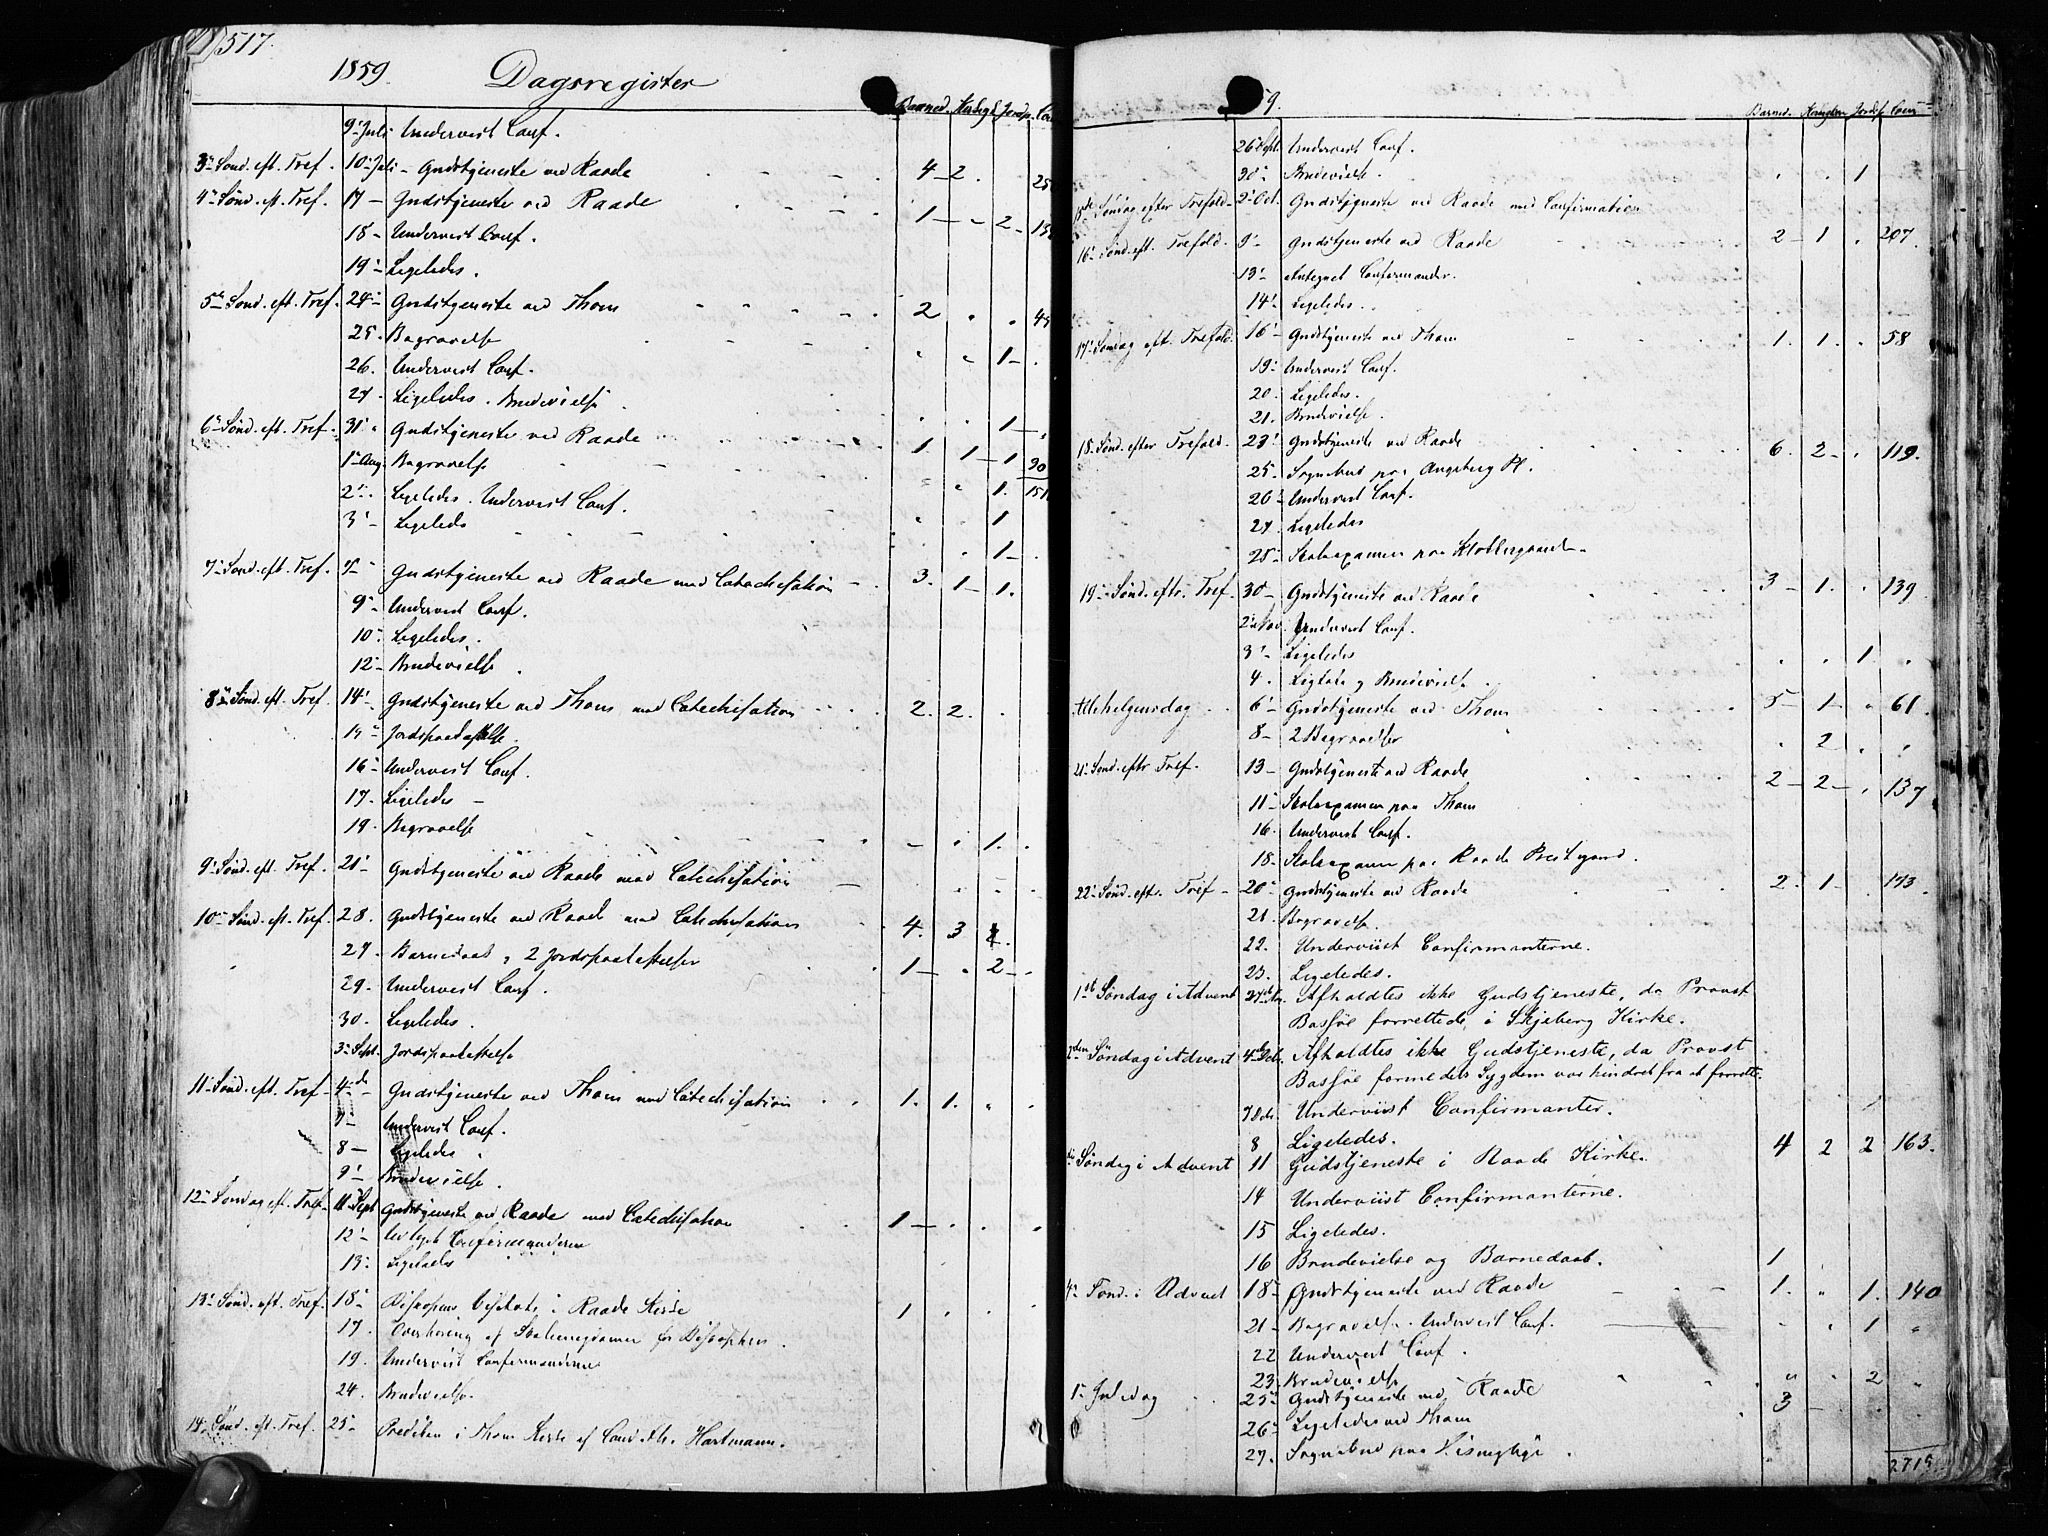 517.
1859. Dagsregister
Barned. Jordp.
9' Juli Undervist Conf.
3' Sønd. eft. Tref. 10' Juli - Gudstjeneste ved Raade 4 - 2.
4' Sønd. eft. Tref. 17 - Gudstjeneste ved Raade 1 - - 2 -
18 - Undervist Conf.
19 - Ligeledes.
5' Sønd. eft. Tref. 24 - Gudstjeneste ved Thom 2
25. Begravelse 1 -
26. Undervist Conf.
27 Ligeledes. Brudevielse 1 -
6' Sønd. eft. Tref. 31' Gudstjeneste ved Raade 1. 1 - 1
1' Aug. Begravelse 1.
2' Ligeledes. Undervist Conf. 1
3' - Ligeledes 1 -
7' Sønd. eft. Tref. 7 - Gudstjeneste ved Raade med Catechisation 3. 1 - 1.
9 - Undervist Conf.
10 Ligeledes.
12 - Brudevielse.
8' Sønd. eft. Tref. 14' Gudstjeneste ved Thom med Catechisation 2. 2.
Jordspaakastelse.
16 - Undervist Conf.
17. Ligeledes -
19. Begravelse 1.
9' Sønd. eft. Tref. 21' Gudstjeneste ved Raade med Catechisation
10' Sønd. eft. Tref. 28. Gudstjeneste ved Raade med Catechisation 4. 3
27. Barnedaab, 2 Jordspaakastelser 1 - 2 -
29. Undervist Conf.
30. Ligeledes.
3' Sept. Jordspaakastelse
11' Sønd. eft. Tref - 4 Gudstjeneste ved Thom med Catechisation 1. 1.
7 - Undervist Conf.
8 - Ligeledes
9' - Brudevielse.
12' Søndag eft. Tref - 11 Sept Gudstjeneste ved Raade med Catechisation 1 -
12' Confirmanderne
13 Ligeledes
13' Sønd. eft. Tref. 18' Biskopens Visitats i Raade Kirke 1
17. Overhøring af Skoleungdommen for Biskopen.
19. Undervist Confirmanderne
24. Brudevielse.
14' Sønd. eft. Tref. 25 - Prædiken i Thom Kirke af Cand. th. Hartmann.
9.
Barned. Jordsp.
26 Sept. Undervist Conf.
30 - Brudevielse. 1
Søndag efter Trefold - 2' Oct. Gudstjeneste ved Raade med Confirmation
16' Sønd. eft. Trefold. 9 - Gudstjeneste ved Raade 2 - 1 207.
13' Antegnet Confirmander.
14' Ligeledes.
17' Søndag eft. Trefold. 16' Gudstjeneste ved Thom 1. 1. 58
19' Undervist Conf.
20. Ligeledes.
21. Brudevielse.
18. Sønd. efter Trefold. 23' Gudstjeneste ved Raade 6. 2 - 119.
25. Sognebud paa
26 - Undervist Conf.
27. Ligeledes
28 - Skoleexamen paa
19 - Sønd. eftr. Tref. 30 - Gudstjeneste ved Raade 3 - 1. 139
2' Nov. Undervist Conf.
3' - Ligeledes 1
4. Ligeledes og Brudevielse.
Allehelgensdag 6' Gudstjeneste ved Thom 5 - 1 - 61.
8 - 2 Begravelser 2
21' Sønd. eftr Tref. 13 - Gudstjeneste ved Raade 2 - 2 - 137
11' Skoleexamen paa Thom
16. Undervist Conf.
18 - Skoleexamen paa Raade Prestegaard.
22' Sønd. eft. Tref - 20' Gudstjeneste ved Raade 2. 1 - 173.
21. Begravelse.
22. Underviist Confirmanterne.
23. Ligeledes.
1st Søndag i Advent 27 Afholdtes ikke Gudstjeneste, da Provst
Bassøe forrettede i Skjeberg Kirke.
2den Søndag i Advent 4de Dcb. Afholdtes ikke Gudstjeneste, da Provst
Bassøe formedels Sygdom var hindret fra at forrette.
7 Underviist Confirmanter.
8 Ligeledes.
Søndag i Advent 11 Gudstjeneste i Raade Kirke. 4 2 2 163.
14 Underviist Confirmanterne.
15 Ligeledes.
16 Brudevielse og Barnedaab. 1
4' Sønd. i Advent 18 - Gudstjeneste ved Raade 1. 1. 140
21 - Begravelse. Undervist Conf. 1
22 Undervist Conf.
23. Brudevielse 2
1' Juledag 25' Gudstjeneste ved Raade 3
26' Ligeledes ved Thom
27. Sognebud paa
2715